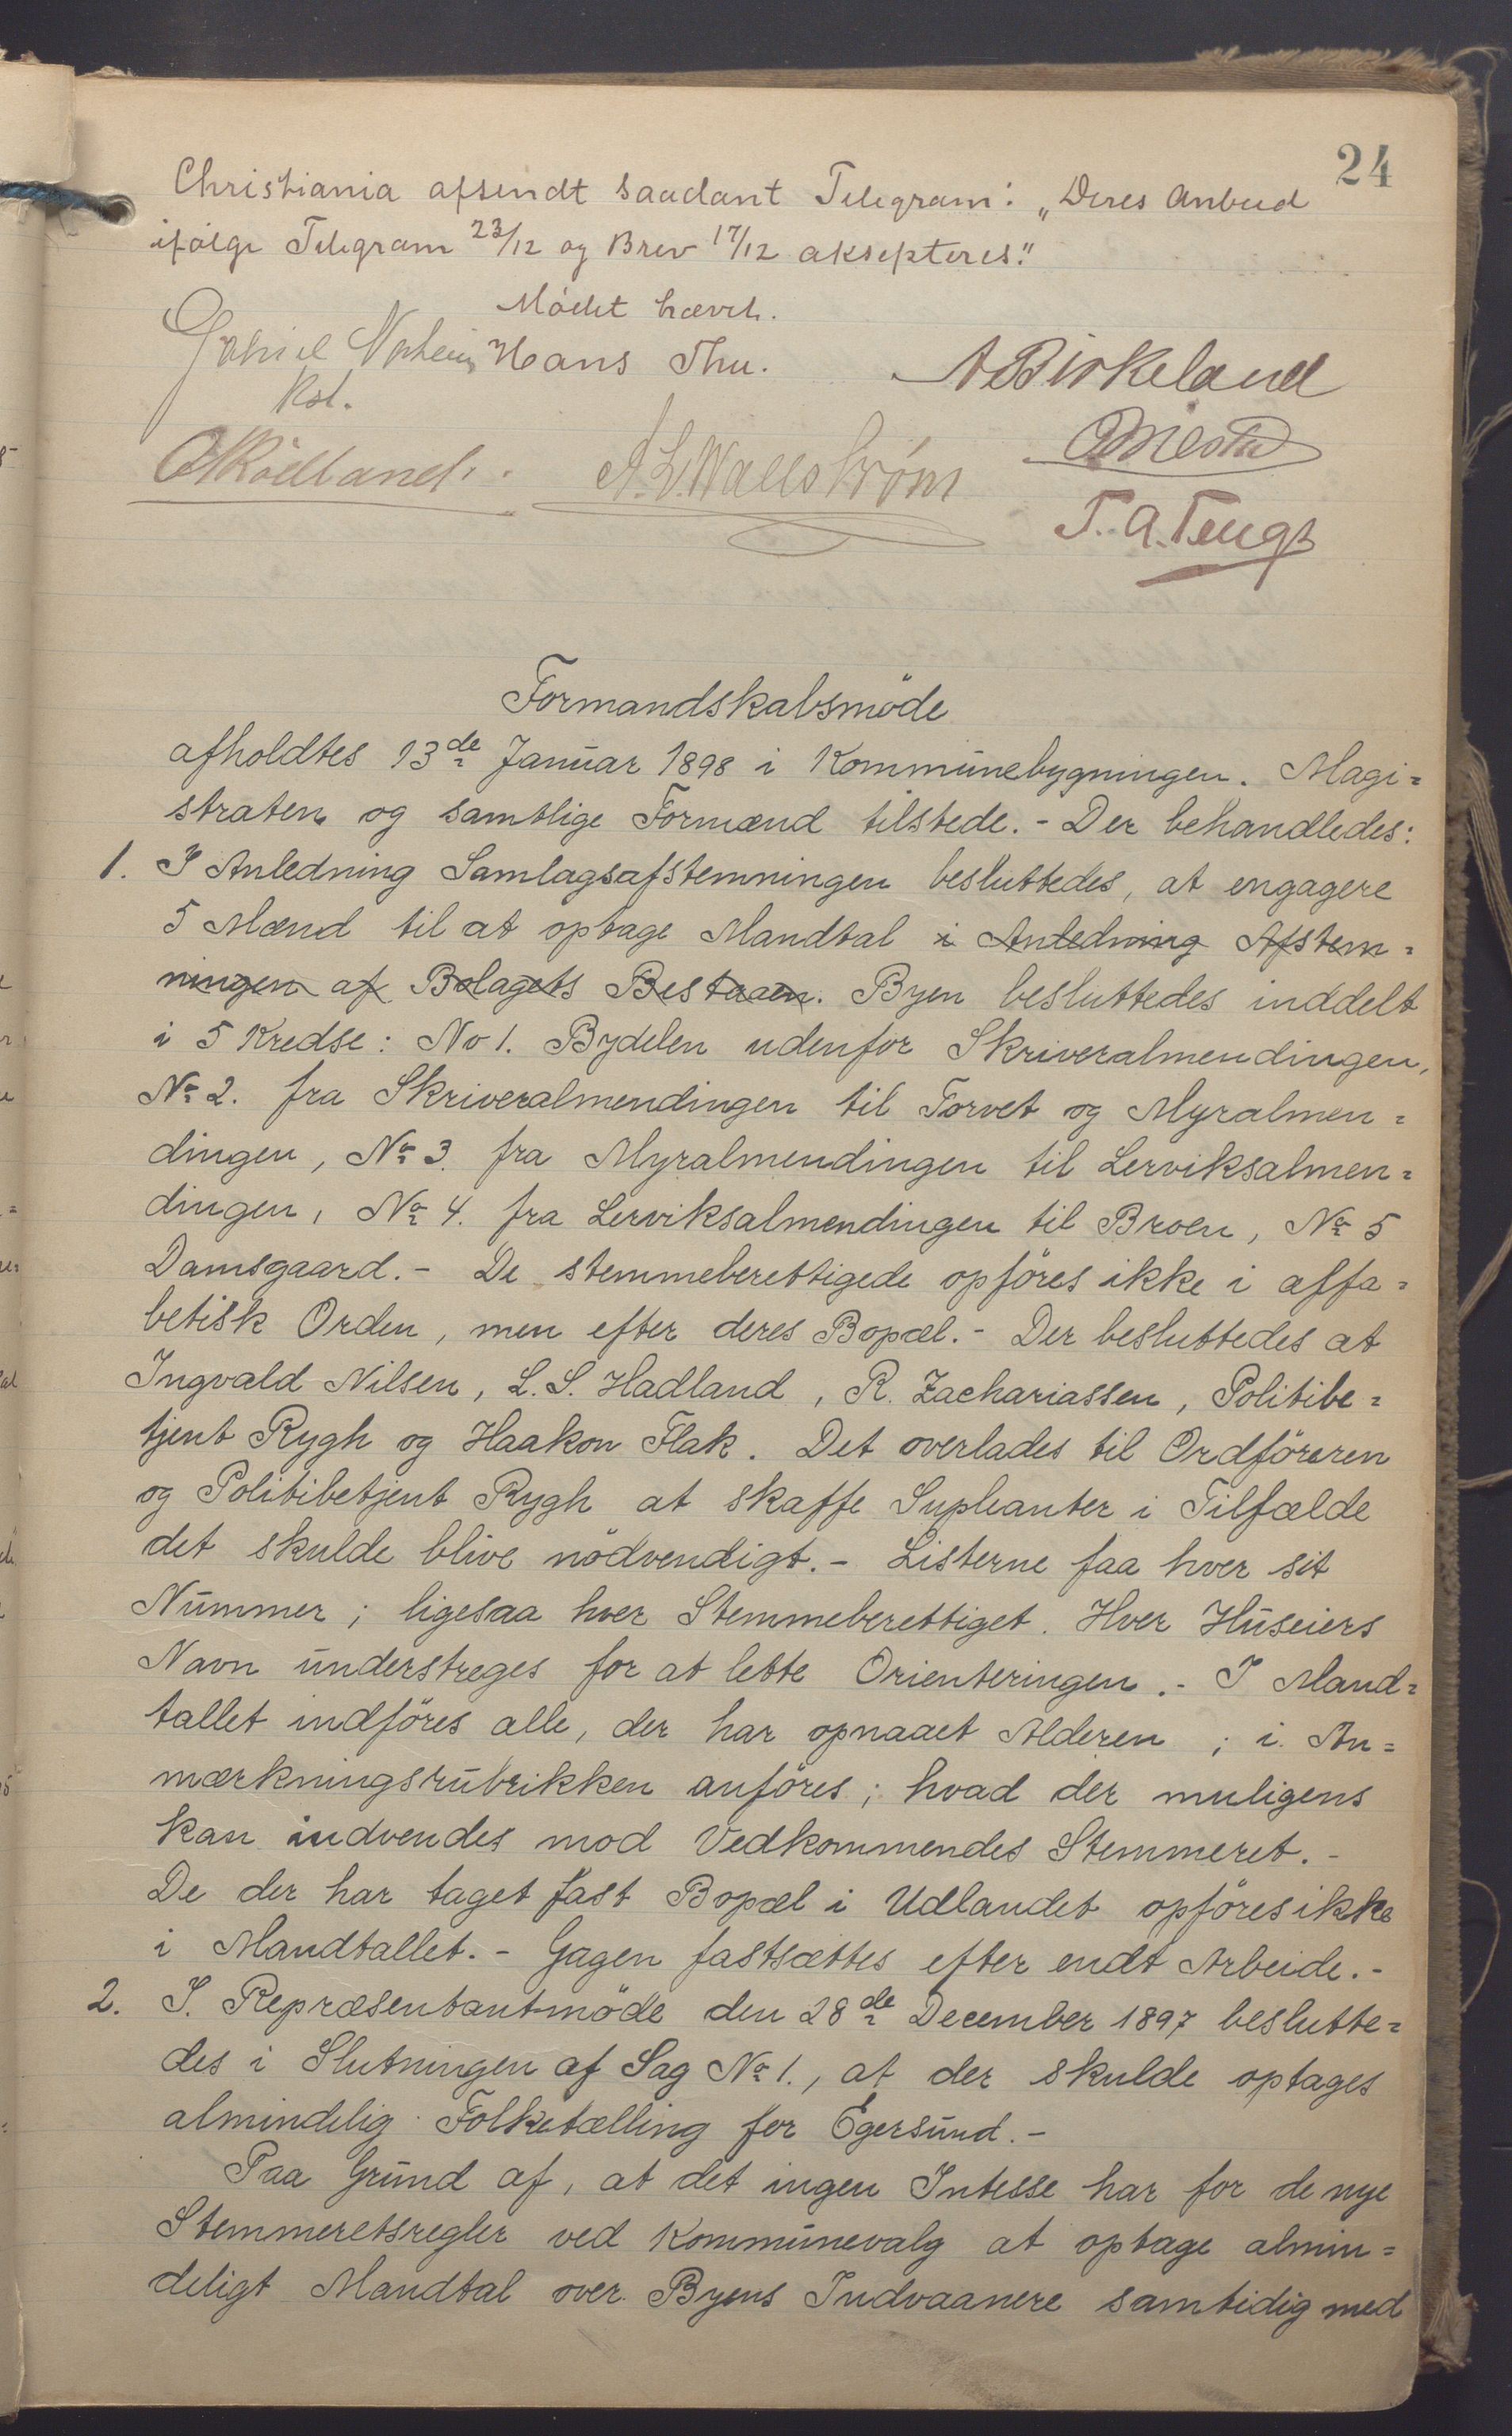 24
Christiania afsendt saadant Telegram: „Deres Anbud
ifølge Telegram 23/12 og Brev 17/12 aksepteres."
Mödet hævet.
Gabriel Hans Thu. A Birkeland
Kst.
A. L. Wallström
T. A. Tengs
Formandskabsmöde
afholdtes 13de Januar 1898 i Kommunebygningen. Magi=
straten og samtlige Formænd tilstede. - Der behandledes:
1. I Anledning Samlagsafstemningen besluttedes, at engagere
5 Mænd til at optage Mandtal i Anledning Afstem=
ningen af Bolagets Bestaaen. Byen besluttedes inddelt
i 5 Kredse: No 1. Bydelen udenfor Skriveralmendingen,
No 2. fra Skriveralmendingen til Torvet og Myralmen=
dingen, No 3. fra Myralmendingen til Lerviksalmen=
dingen, No 4. fra Lerviksalmendingen til Broen, No 5
Damsgaard. - De stemmeberettigede opföres ikke i alfa=
betisk Orden, men efter deres Bopæl. - Der besluttedes at
Ingvald Nilsen, L. S. Hadland, R. Zachariassen, Politibe=
tjent Rygh og Haakon Flak. Det overlades til Ordföreren
og Politibetjent Rygh at skaffe Supleanter i Tilfælde
det skulde blive nödvendigt. - Listerne faa hver sit
Nummer; ligesaa hver Stemmeberettiget. Hver Huseiers
Navn understreges for at lette Orienteringen. - I Mand=
tallet indföres alle, der har opnaaet Alderen; i An=
mærkningsrubrikken anföres; hvad der muligens
kan indvendes mod Vedkommendes Stemmeret. -
De der har taget fast Bopæl i Udlandet opföres ikke
i Mandtallet. - Gagen fastsættes efter endt Arbeide. -
2. I. Repræsentantmöde den 28de December 1897 beslutte=
des i Slutningen af Sag No 1., at der skulde optages
almindelig Folketælling for Egersund. -
Paa Grund af, at det ingen Intesse har for de nye
Stemmeretsregler ved Kommunevalg at optage almin=
deligt Mandtal over Byens Indvaanere samtidig med